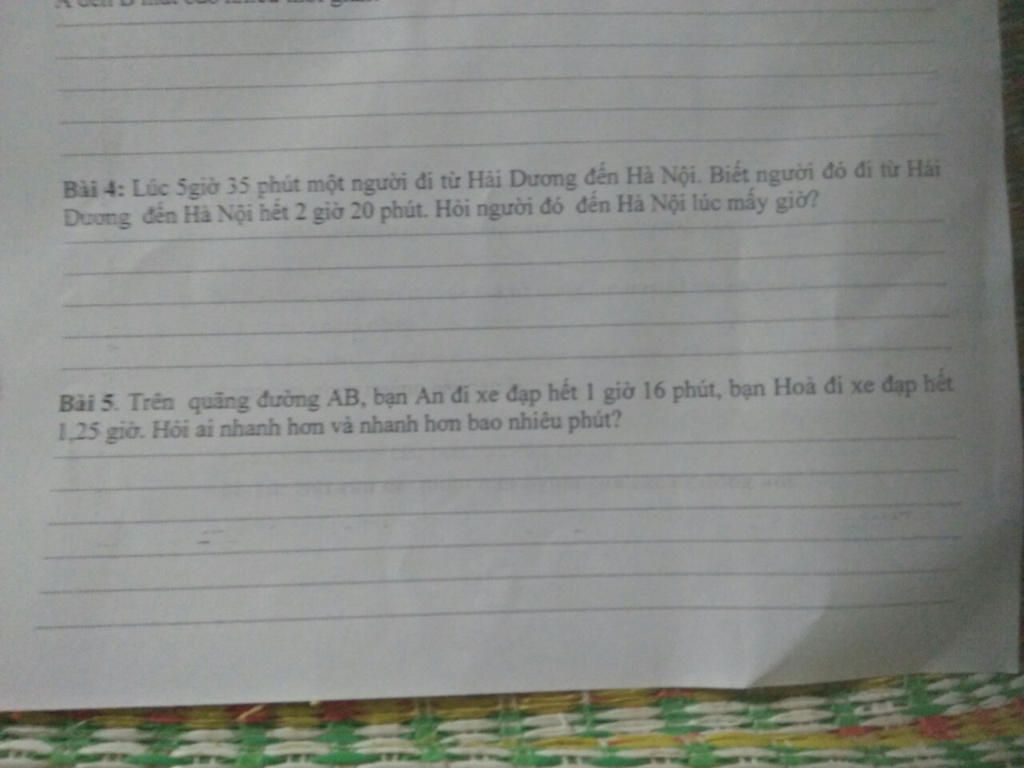 A đến B
Bài 4: Lúc 5giờ 35 phút một người đi từ Hải Dương đến Hà Nội. Biết người đó đi từ Hải
Dương đến Hà Nội hết 2 giờ 20 phút. Hỏi người đó đến Hà Nội lúc mấy giờ?
Bài 5. Trên quãng đường AB, bạn An đi xe đạp hết 1 giờ 16 phút, bạn Hoà đi xe đạp hết
1,25 giờ. Hỏi ai nhanh hơn và nhanh hơn bao nhiêu phút?